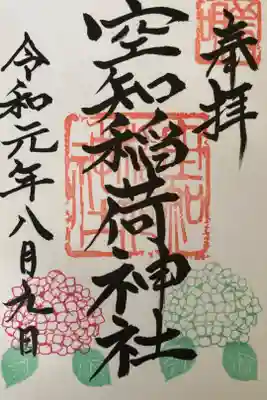 奉拝
空知稲荷神社
令和元年八月九日